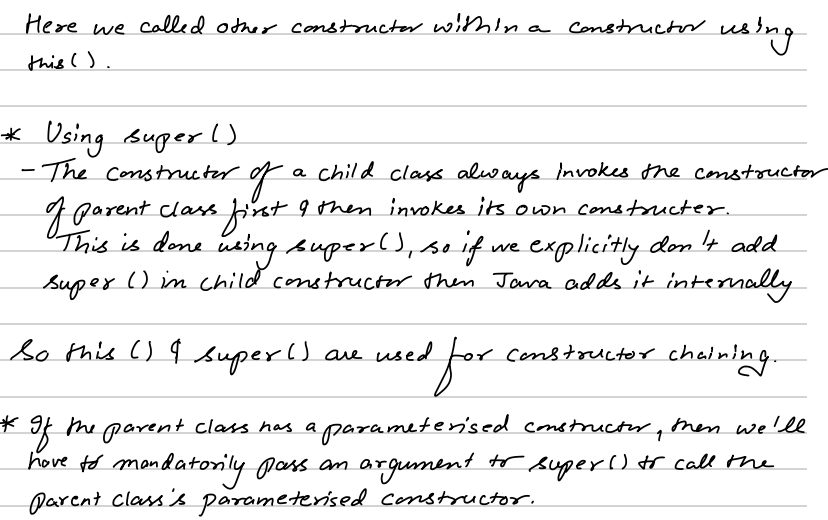 Here we called other constructor within a constructor using
this().
* Using super()
- The constructor of a child class always invokes the constructor
of parent class first & then invokes its own constructer.
This is done using super(), so if we explicitly don't add
super() in child constructor then Java adds it internally
So this() & super() are used for constructor chaining.
* If the parent class has a parameterised constructor, then we'll
have to mandatorily pass an argument to super() to call the
parent class's parameterised constructor.